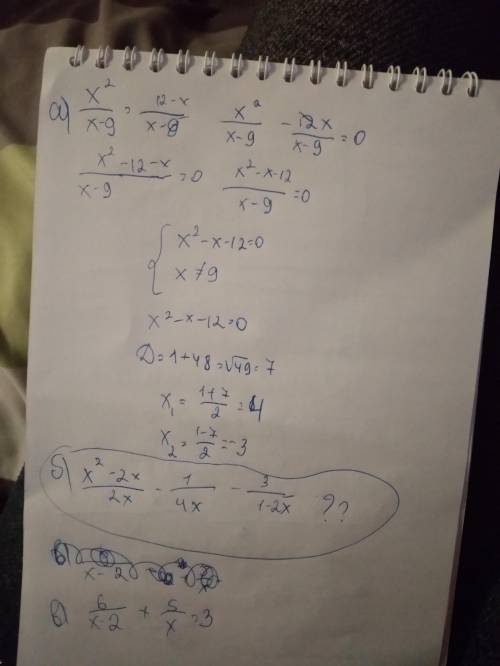 а) x²/(x-9) = (12-x)/(x-9)   x²/(x-9) - 12x/(x-9) = 0
(x²-12-x)/(x-9) = 0   (x²-x-12)/(x-9) = 0
{ x²-x-12=0
x≠9
x²-x-12=0
Д=1+48=√49=7
x₁ = (1+7)/2 = 4
x₂ = (1-7)/2 = -3
б) (x²-2x)/2x - 1/4x - 3/(1-2x) ??
в) x-2
в) 6/(x-2) + 5/x = 3